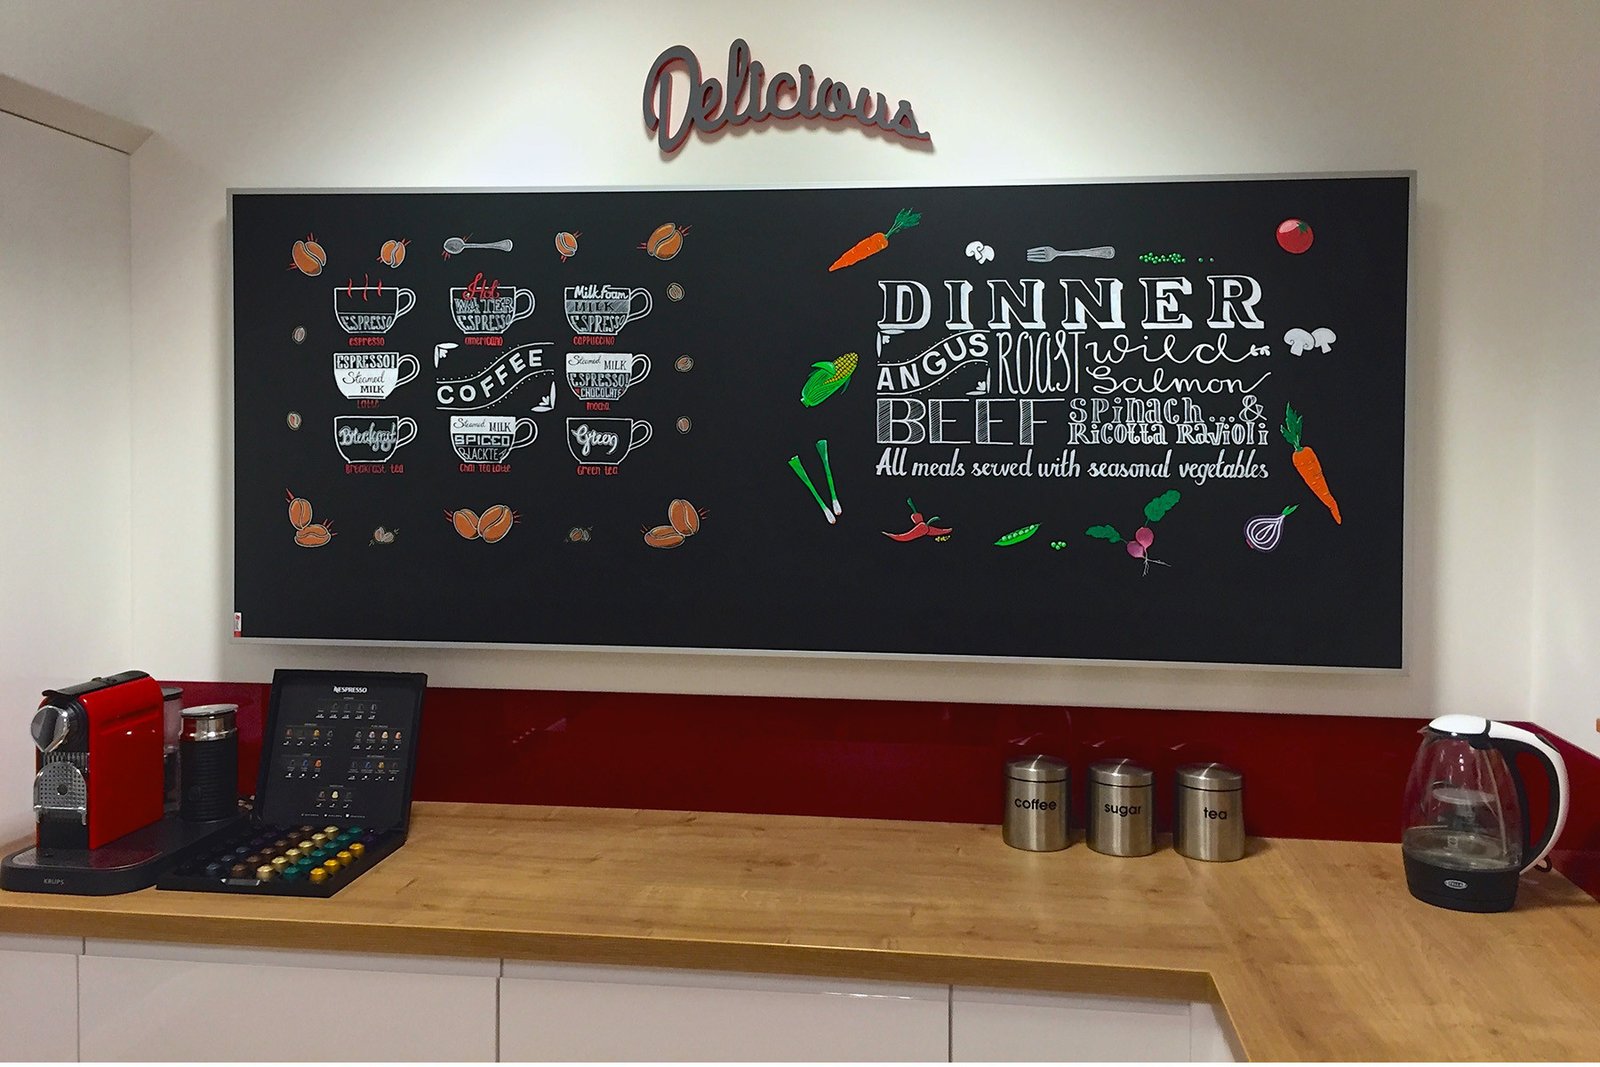 Delicious
ESPRESSO
espresso
Hot
WATER
ESPRESSO
americano
Milk Foam
MILK
ESPRESSO
cappuccino
ESPRESSO
Steamed
MILK
Latte
COFFEE
Steamed MILK
ESPRESSO
CHOCOLATE
mocha
Breakfast
Breakfast tea
Steamed MILK
SPICED
BLACKTEA
Chai Tea Latte
Green
Green tea
DINNER
ANGUS ROAST Wild
Salmon
BEEF Spinach...&
Ricotta Ravioli
All meals served with seasonal vegetables
NESPRESSO
KRUPS
coffee
sugar
tea